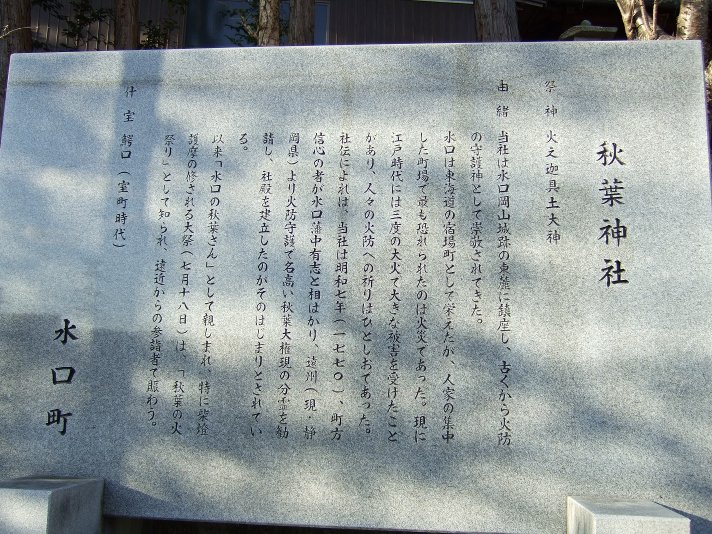 秋葉神社
祭神 火之迦具土大神
由緒 当社は水口岡山城跡の東麓に鎮座し、古くから火防
の守護神として崇敬されてきた。
水口は東海道の宿場町として栄えたが、人家の集中
した町場で最も恐れられたのは火災であった。現に
江戸時代には三度の大火で大きな被害を受けたこと
があり、人々の火防への祈りはひとしおであった。
社伝によれば、当社は明和七年(一七七〇)、町方
信心の者が水口藩中有志と相はかり、遠州(現・静
岡県)より火防守護で名高い秋葉大権現の分霊を勧
請し、社殿を建立したのがそのはじまりとされてい
る。
以来「水口の秋葉さん」として親しまれ、特に柴燈
護摩の修される大祭(七月十八日)は、「秋葉の火
祭り」として知られ、遠近からの参詣者で賑わう。
什宝 鰐口(室町時代)
水口町